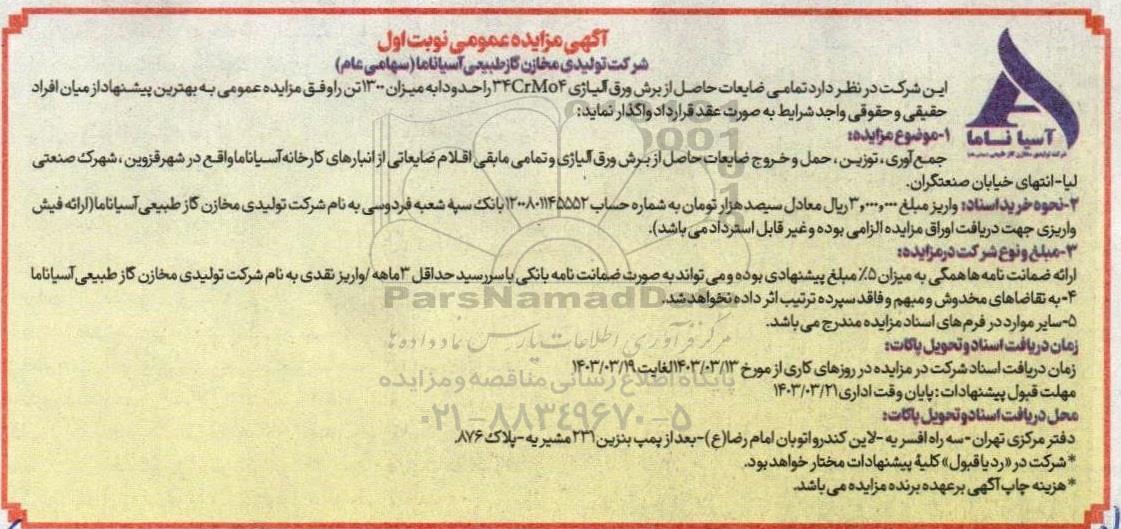 آگهی مزایده عمومی نوبت اول
شرکت تولیدی مخازن گاز طبیعی آسیاناما (سهامی عام)
این شرکت در نظر دارد تمامی ضایعات حاصل از برش ورق آلیاژی ۳۴CrMo۴ را حدودا به میزان ۱۳۰۰ تن را وفق مزایده عمومی به بهترین پیشنهاد از میان افراد
حقیقی و حقوقی واجد شرایط به صورت عقد قرارداد واگذار نماید:
۱-موضوع مزایده:
جمع آوری، توزین، حمل و خروج ضایعات حاصل از برش ورق آلیاژی و تمامی مابقی اقلام ضایعاتی از انبارهای کارخانه آسیاناما واقع در شهر قزوین، شهرک صنعتی
لیا-انتهای خیابان صنعتگران.
۲-نحوه خرید اسناد: واریز مبلغ ۳,۰۰۰,۰۰۰ ریال معادل سیصد هزار تومان به شماره حساب ۱۲۰۰۸۰۱۱۴۵۵۵۲ بانک سپه شعبه فردوسی به نام شرکت تولیدی مخازن گاز طبیعی آسیاناما (ارائه فیش
واریزی جهت دریافت اوراق مزایده الزامی بوده و غیر قابل استرداد می باشد).
۳-مبلغ و نوع شرکت در مزایده:
ارائه ضمانت نامه ها همگی به میزان ۵٪ مبلغ پیشنهادی بوده و می تواند به صورت ضمانت نامه بانکی با سررسید حداقل ۳ ماهه / واریز نقدی به نام شرکت تولیدی مخازن گاز طبیعی آسیاناما
۴-به تقاضاهای مخدوش و مبهم و فاقد سپرده ترتیب اثر داده نخواهد شد.
۵-سایر موارد در فرم های اسناد مزایده مندرج می باشد.
زمان دریافت اسناد و تحویل پاکات:
زمان دریافت اسناد شرکت در مزایده در روزهای کاری از مورخ ۱۴۰۳/۰۳/۱۳ لغایت ۱۴۰۳/۰۳/۱۹
مهلت قبول پیشنهادات: پایان وقت اداری ۱۴۰۳/۰۳/۲۱
محل دریافت اسناد و تحویل پاکات:
دفتر مرکزی تهران-سه راه افسریه-لاین کندرو اتوبان امام رضا(ع)-بعد از پمپ بنزین ۲۳۱ مشیریه-پلاک ۸۷۶.
*شرکت در «رد یا قبول» کلیۀ پیشنهادات مختار خواهد بود.
*هزینه چاپ آگهی بر عهده برنده مزایده می باشد.
آسیا ناما
شرکت تولیدی مخازن گاز طبیعی (سهامی عام)
ParsNamadData
مرکز فرآوری اطلاعات پارس نماد داده ها
پایگاه اطلاع رسانی مناقصه و مزایده
۰۲۱-۸۸۳۴۹۶۷۰-۵